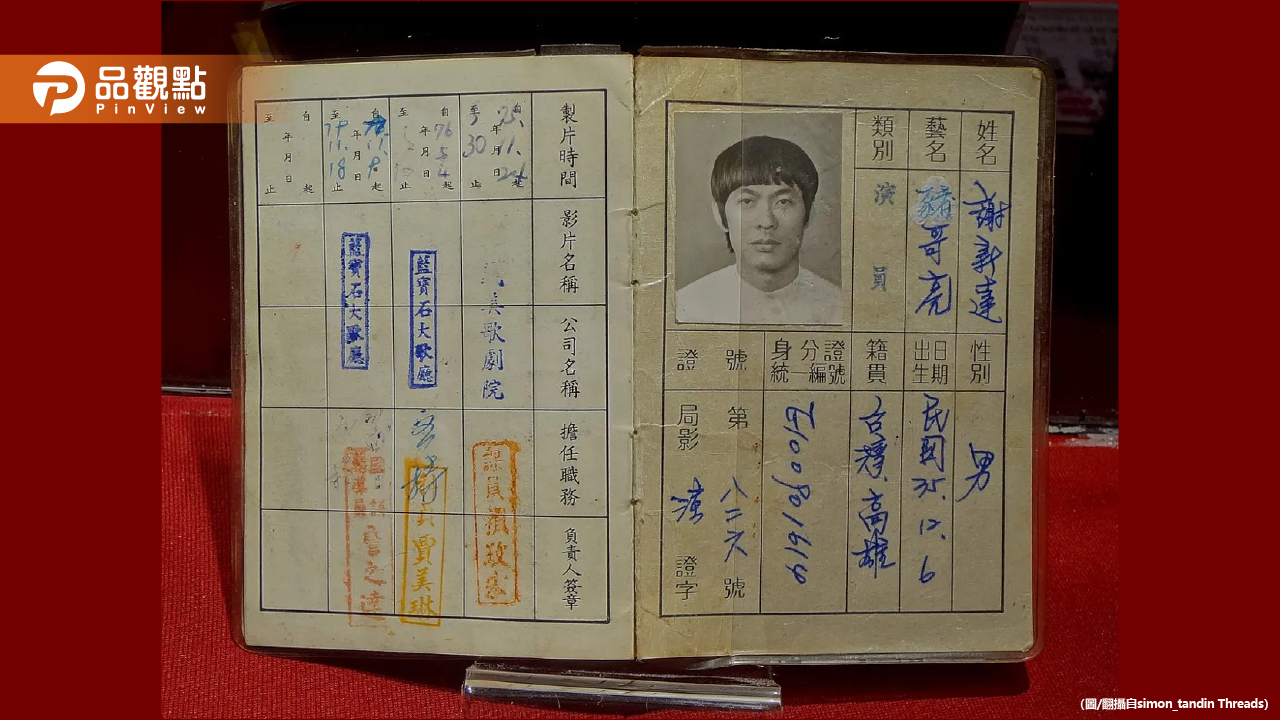 品觀點
PinView
姓名
謝新達
性別
男
藝名
豬哥亮
出生日期
民國35.12.6
類別
演員
籍貫
台灣高雄
身分證統一編號
證號
第八二六號
局影演證字
製片時間
影片名稱
公司名稱
擔任職務
負責人簽章
自 年月日 起
至 止
歌劇院
自 76 年 5 月 4 日 起
至 止
藍寶石大歌廳
賈美琳
自 年月日 起
至 止
藍寶石大歌廳
自 年月日 起
至 止
(圖/翻攝自simon_tandin Threads)